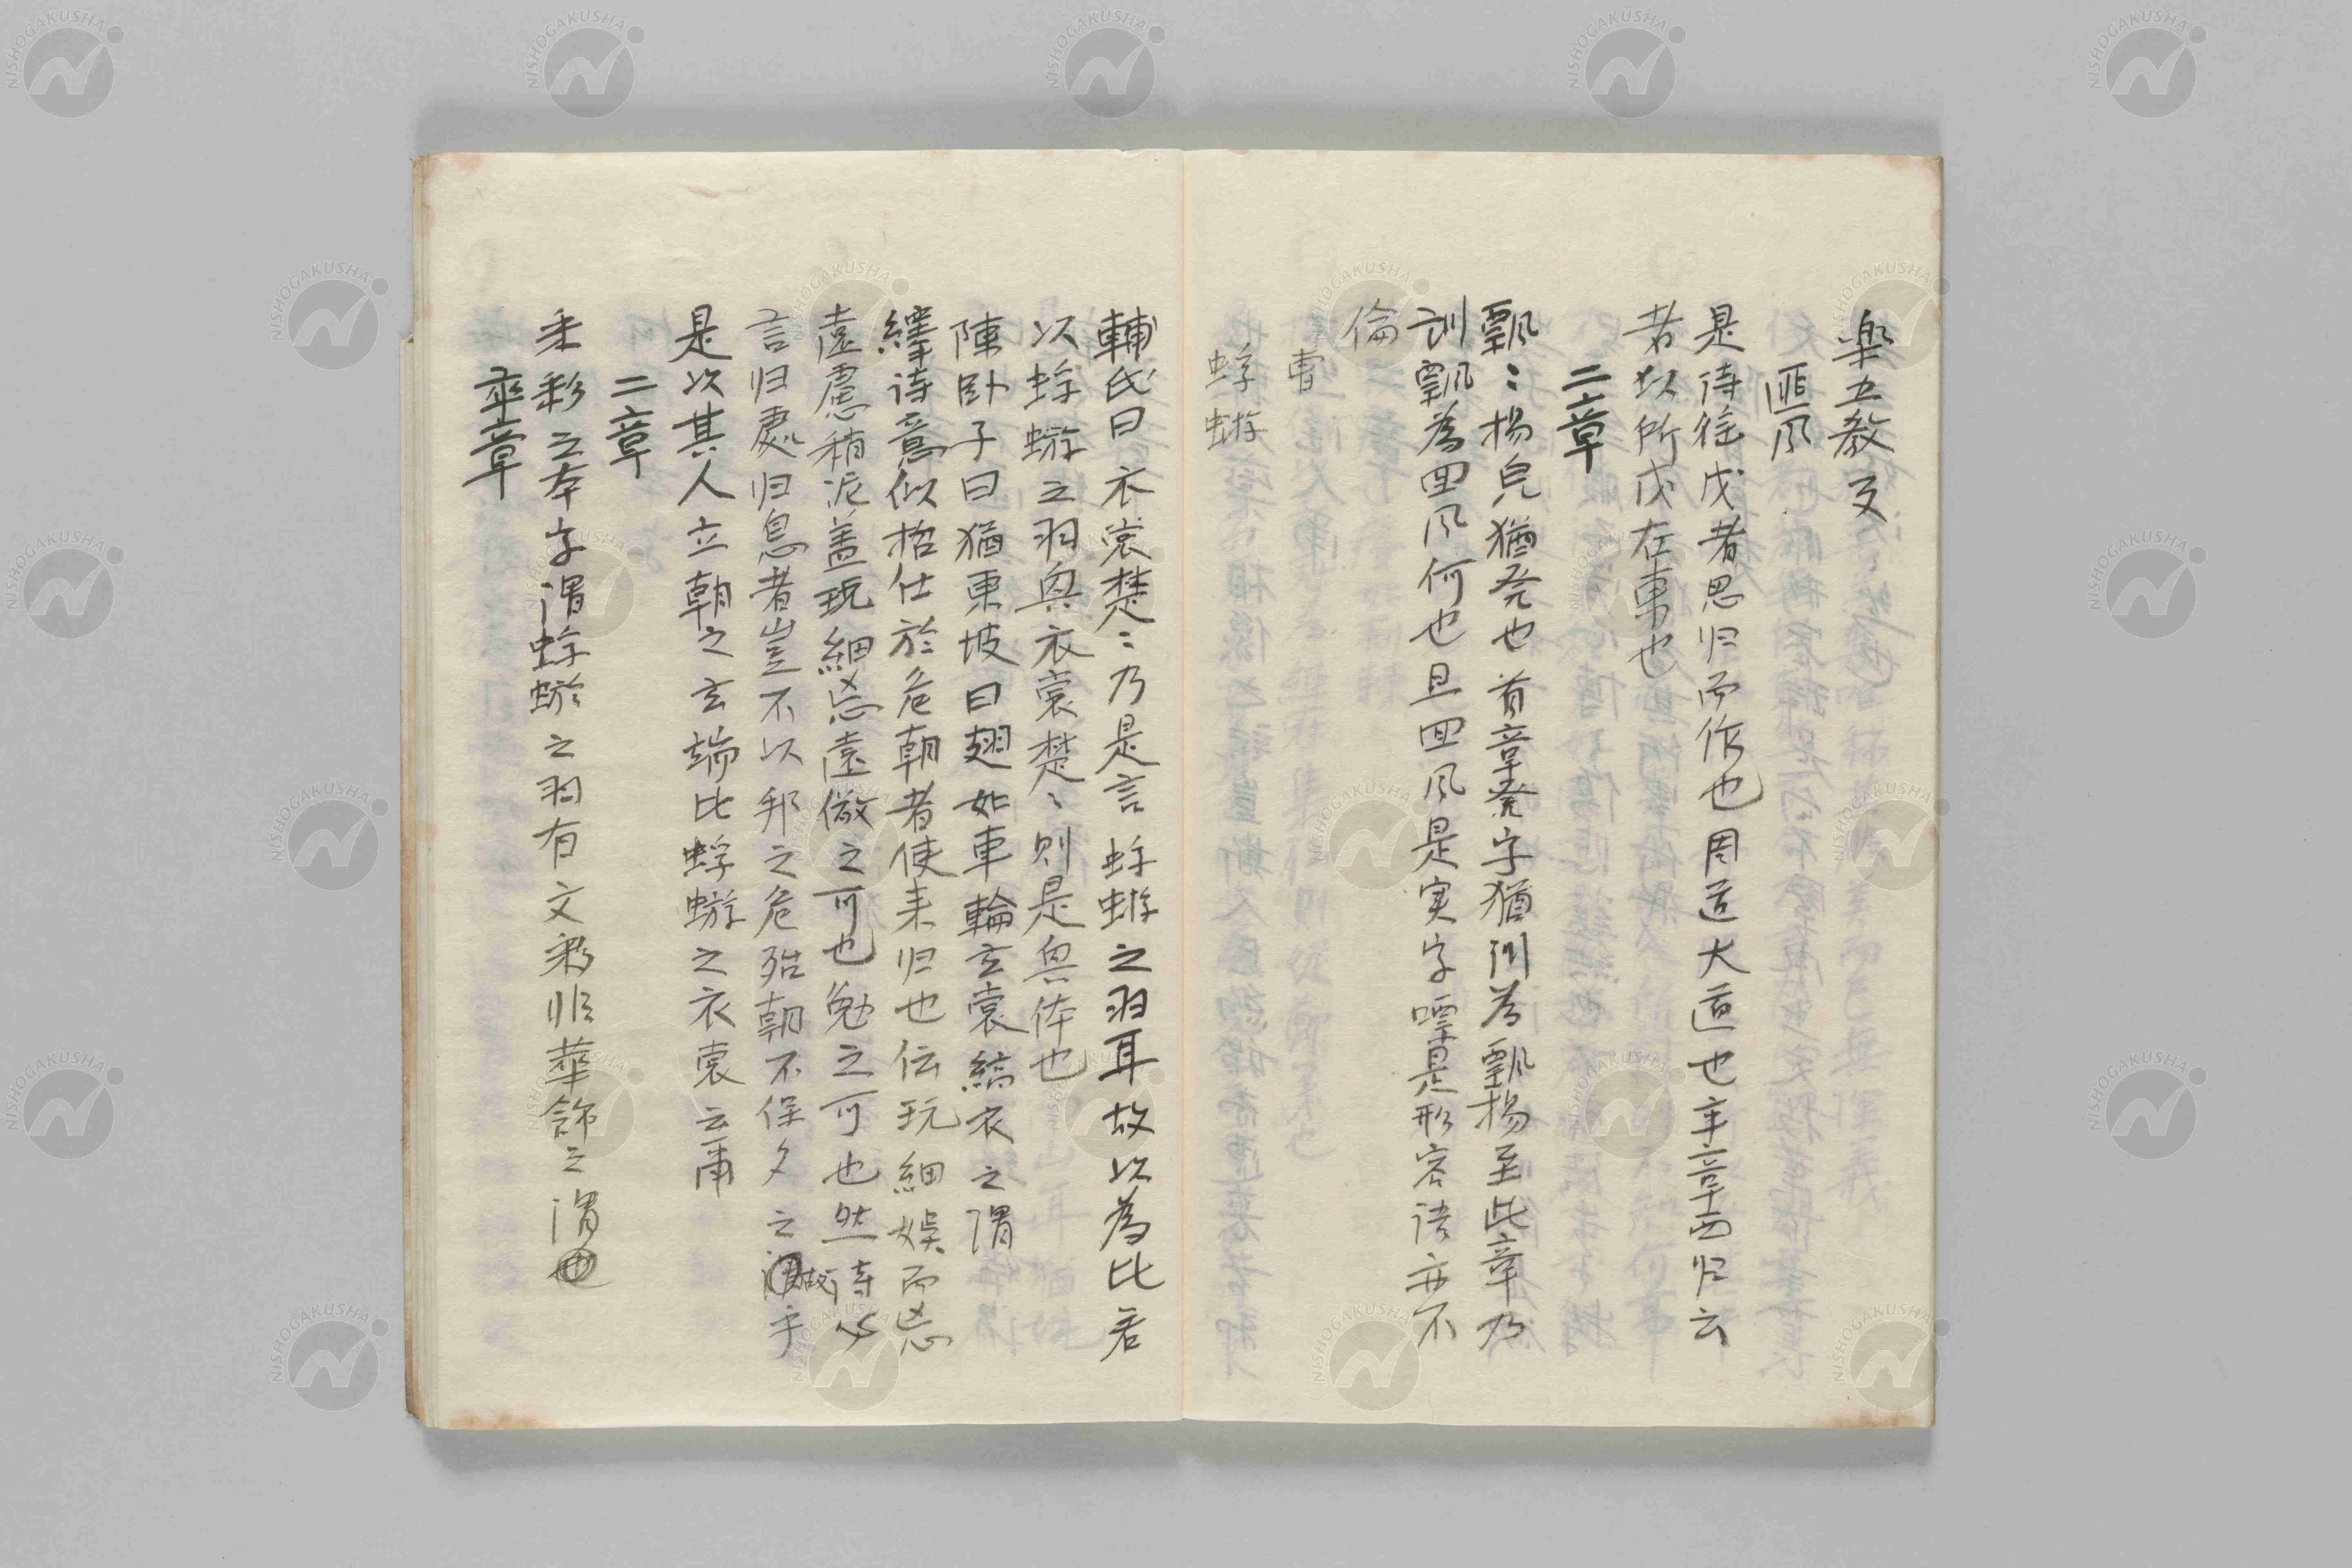 楽五教反
匪風
是詩従戍者思归而作也周道大道也卒章西归云
者以所戍在東也
二章
飄〻揚皃猶発也首章発字猶訓為飄揚至此章乃
訓飄為囬風何也且囬風是実字嘌是形容語亦不
倫
曹
蜉蝣
輔氏曰衣裳楚〻乃是言蜉蝣之羽耳故以為比若
以蜉蝣之羽興衣裳楚〻則是興体也
陳卧子曰猶東坡曰翅如車輪玄裳縞衣之謂
繹詩意似招仕於危朝者使来归也伝玩細娯而忘
遠慮稍泥盖玩細忘遠儆之可也勉之可也然詩必
言归處归息者豈不以邦之危殆朝不保夕之故乎
是以其人立朝之玄端比蜉蝣之衣裳云爾
二章
采彩之本字謂蜉蝣之羽有文彩非華飾之謂也
卒章
NISHOGAKUSHA